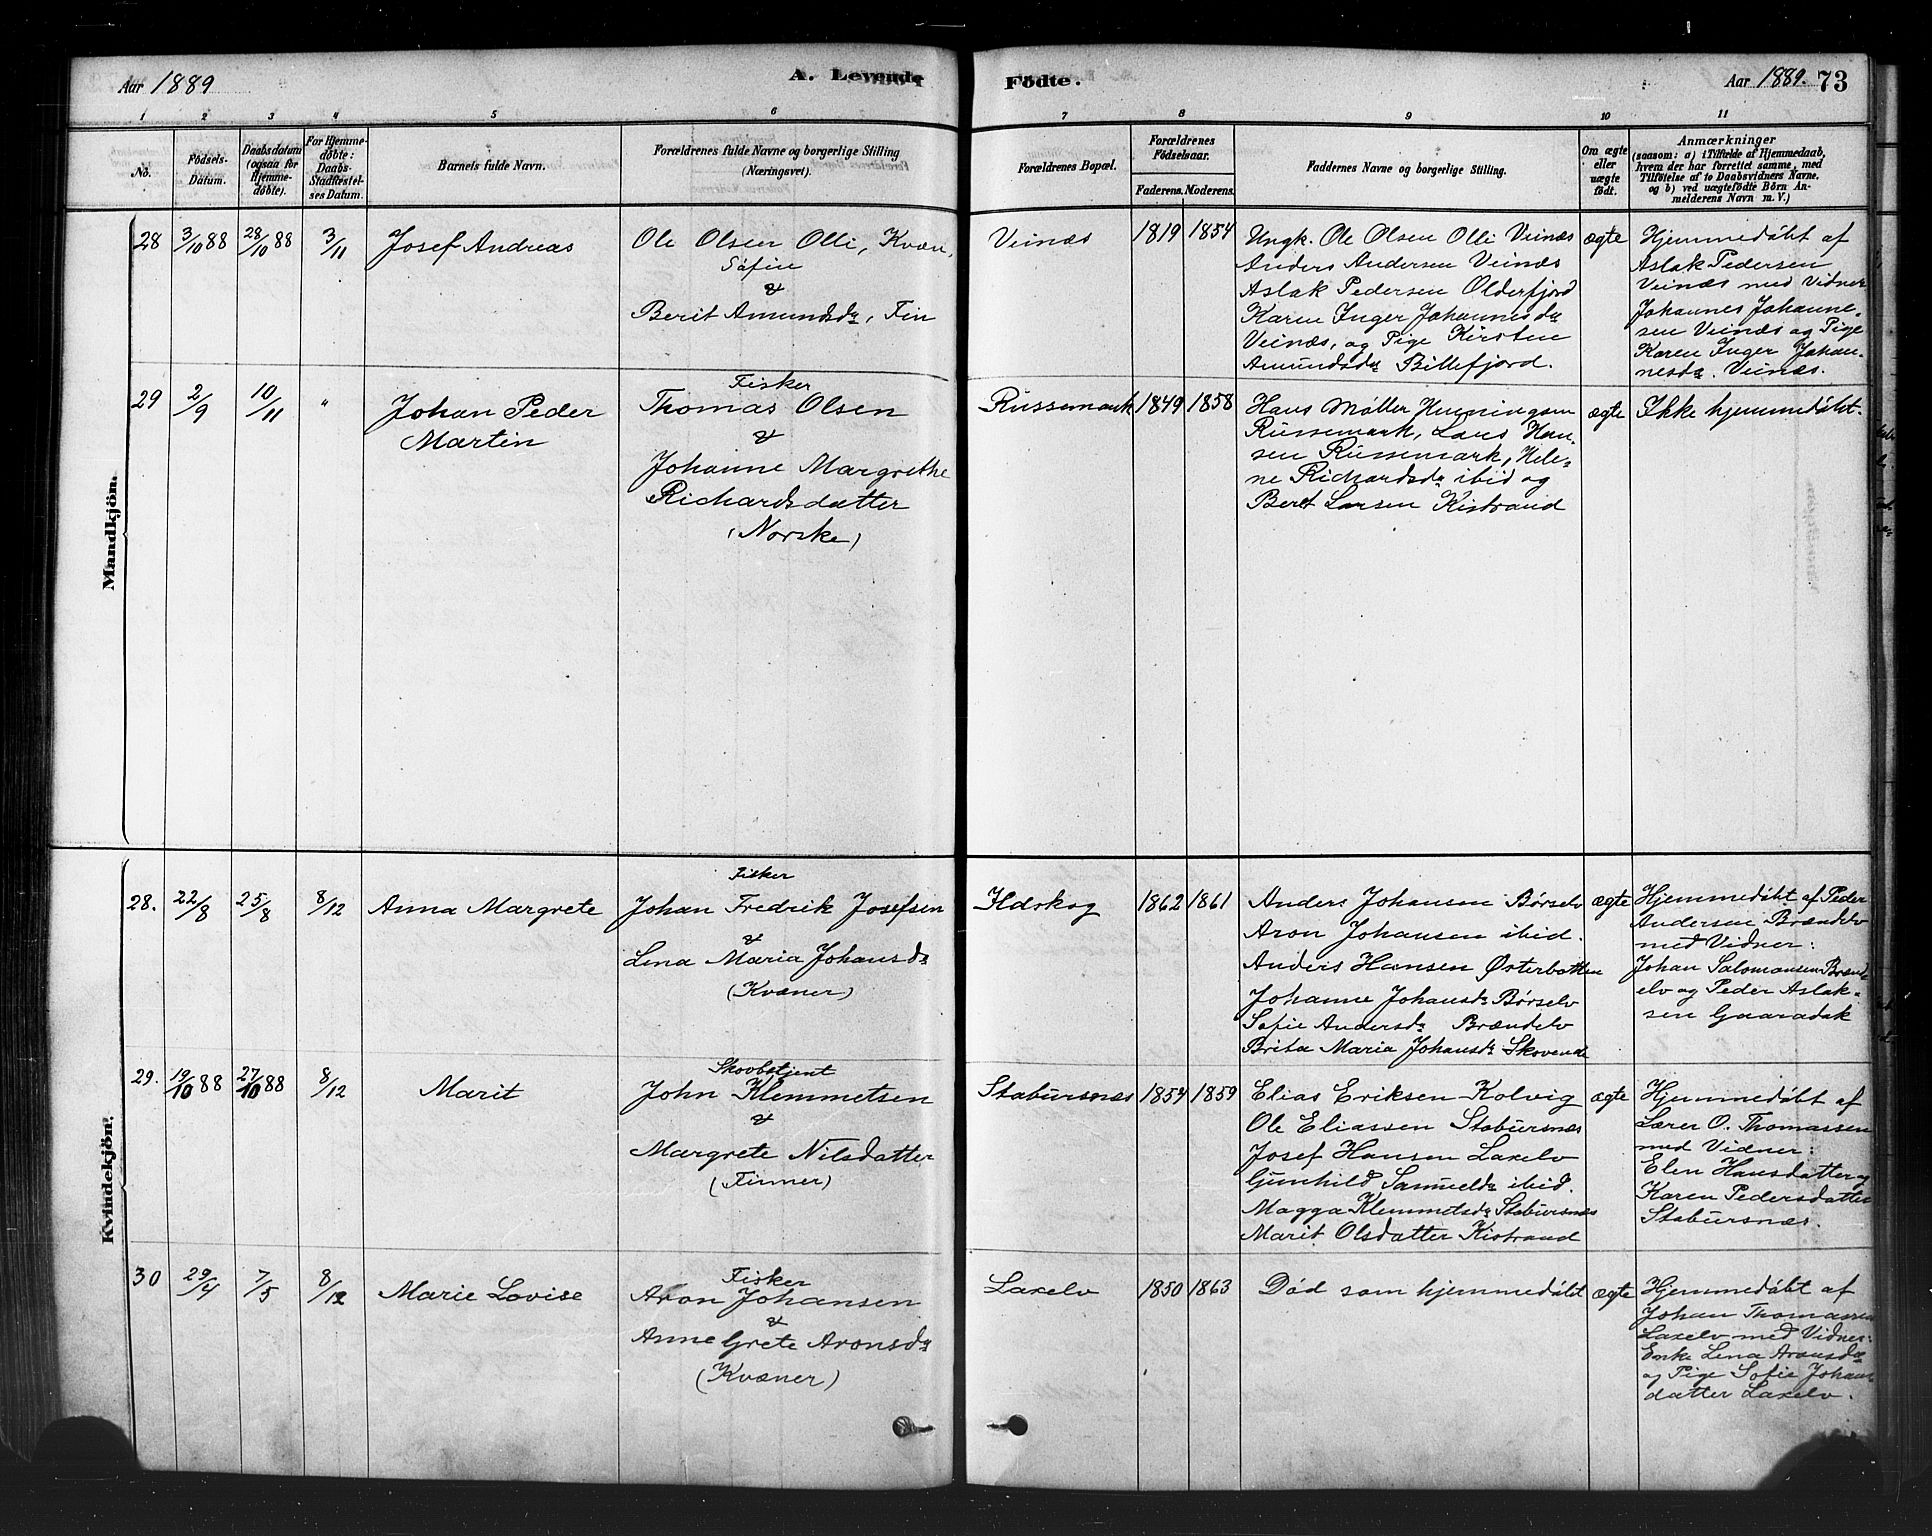 Aar 1889
A. Levende
Födte.
Aar 1889. 73
1 2 3 4 5 6 7 8 9 10 11
No.
Födsels-
Datum.
Daabsdatum
(ogsaa for
Hjemme-
døbte).
For Hjemme-
døbte:
Daabs-
Stadfæstel-
ses Datum.
Barnets fulde Navn.
Forældrenes fulde Navne og borgerlige Stilling
(Næringsvei).
Forældrenes Bopæl.
Forældrenes
Födselsaar.
Faderens. Moderens.
Faddernes Navne og borgerlige Stilling.
Om ægte
eller
uægte
født.
Anmærkninger
(saasom: a) i Tilfælde af Hjemmedaab,
hvem der har forrettet samme, med
Tilføielse af to Daabsvidners Navne,
og b) ved uægtefødte Börn An-
melderens Navn m. V.)
Mandkjön.
28 3/10 88 28/10 88 3/11
Josef Andreas
Ole Olsen Olli, Kvæn,
Søfin
&
Berit Amundsdr, Fin
Veinæs
1819 1854
Ungk. Ole Olsen Olli Veinæs
Anders Andersen Veinæs
Aslak Pedersen Olderfjord
Karen Inger Johannesdr
Veinæs, og Pige Kirsten
Amundsdr Billefjord.
ægte
Hjemmedøbt af
Aslak Pedersen
Veinæs med Vidner
Johannes Johanne-
sen Veinæs og Pige
Karen Inger Johan-
nesdr. Veinæs.
29 2/9 10/11 "
Johan Peder
Martin
Fisker
Thomas Olsen
&
Johanne Margrethe
Richardsdatter
(Norske)
Russemark
1849 1858
Hans Møller Henningsen
Russemark, Lars Han-
sen Russemark, Hele-
ne Richardsdr ibid og
Beret Larsen Kistrand
ægte
Ikke hjemmedøbt.
Kvindekjön.
28. 22/8 25/8 8/12
Anna Margrete
Fisker
Johan Fredrik Josefsen
&
Lena Maria Johansdr
(Kvæner)
Ildskog
1862 1861
Anders Johansen Børselv
Aron Johansen ibid.
Anders Hansen Østerbotten
Johanne Johansdr Børselv
Sofie Andersdr Brændelv
Brita Maria Johansdr Skovende
ægte
Hjemmedøbt af Peder
Andersen Brændelv
med Vidner:
Johan Salomonsen Brænd-
elv og Peder Aslak-
sen Gaaradak
29. 19/10 88 27/10 88 8/12
Marit
Skovbetjent
John Klemmetsen
&
Margrete Nilsdatter
(Finner)
Stabursnæs
1854 1859
Elias Eriksen Kolvig
Ole Eliassen Stabursnæs
Josef Hansen Laxelv
Gunhild Samuelsdr ibid.
Magga Klemmetsdr Stabursnæs
Marit Olsdatter Kistrand
ægte
Hjemmedøbt af
Lærer O. Thomassen
med Vidner:
Elen Hansdatter og
Karen Pedersdatter
Stabursnæs.
30 29/4 7/5 8/12
Marie Lovise
Fisker
Aron Johansen
&
Anne Grete Aronsdr
(Kvæner)
Laxelv
1850 1863
Død som hjemmedøbt
ægte
Hjemmedøbt af
Johan Thomassen
Laxelv med Vidner:
Enke Lena Aronsdr
og Pige Sofie Johans
datter Laxelv.